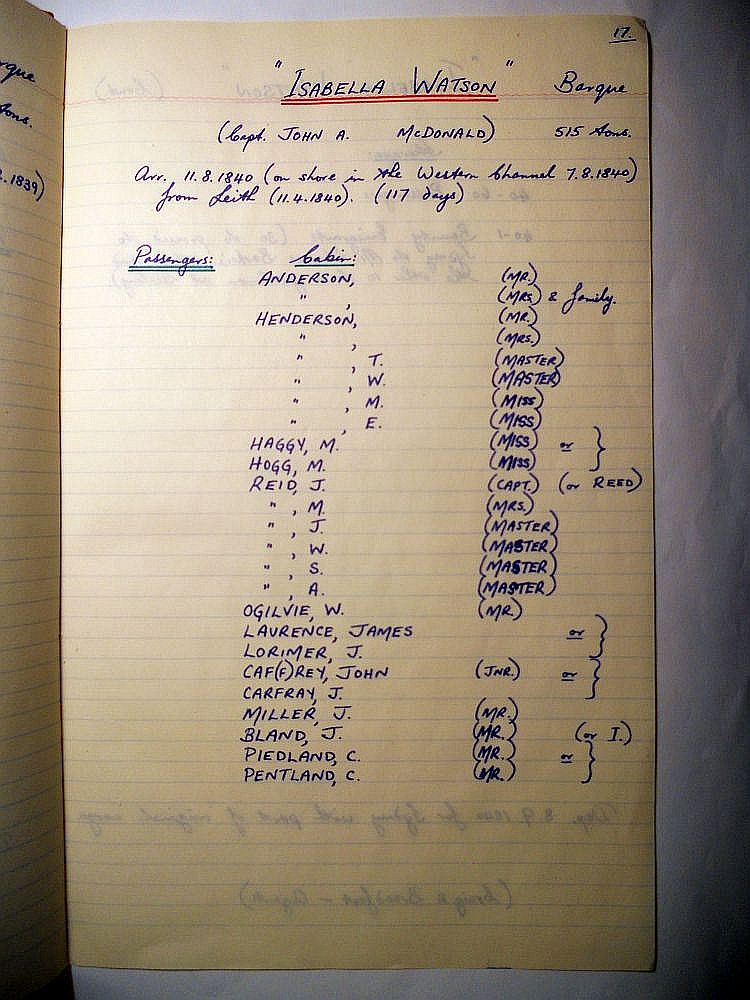 17.
"ISABELLA WATSON" Barque
(Capt. JOHN A. McDONALD) 515 tons.
Arr. 11.8.1840 (on shore in the Western Channel 7.8.1840)
from Leith (11.4.1840). (117 days)
Passengers: Cabin:
ANDERSON, (MR.)
" , (MRS) & family.
HENDERSON, (MR.)
" , (MRS.)
" , T. (MASTER)
" , W. (MASTER)
" , M. (MISS)
" , E. (MISS)
HAGGY, M. (MISS) or }
HOGG, M. (MISS)
REID, J. (CAPT.) (or REED)
" , M. (MRS.)
" , J. (MASTER)
" , W. (MASTER)
" , S. (MASTER)
" , A. (MASTER)
OGILVIE, W. (MR.)
LAURENCE, JAMES or }
LORIMER, J.
CAF(F)REY, JOHN (JNR.) or }
CARFRAY, J.
MILLER, J. (MR.)
BLAND, J. (MR.) (or I.)
PIEDLAND, C. (MR.) or }
PENTLAND, C. (MR.)
rque
tons.
.1839)